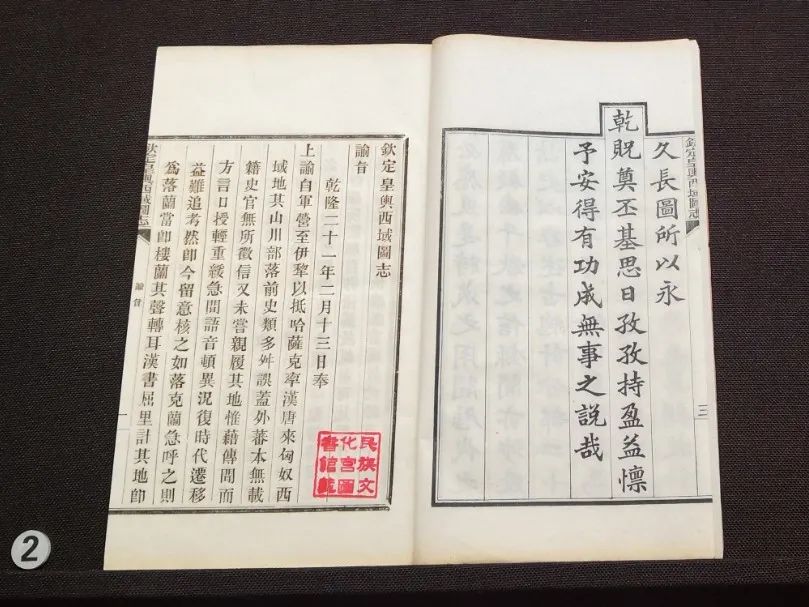 欽定皇輿西域圖志
三
久長圖所以永
乾貺奠丕基思日孜孜持盈益懍
予安得有功成無事之説哉
欽定皇輿西域圖志
諭旨
乾隆二十一年二月十三日奉
上諭自軍營至伊犂以抵哈薩克率漢唐來匈奴西
域地其山川部落前史類多舛誤蓋外蕃本無載
籍史官無所徵信又未嘗親履其地惟藉傳聞而
方言口授輕重緩急間語音頓異況復時代遷移
益難追考然即今留意核之如落克蘭急呼之則
爲落蘭當即樓蘭其聲轉耳漢書屈里計其地即
欽定皇輿西域圖志
諭旨
一
民族文
化宮圖
書館藏
2